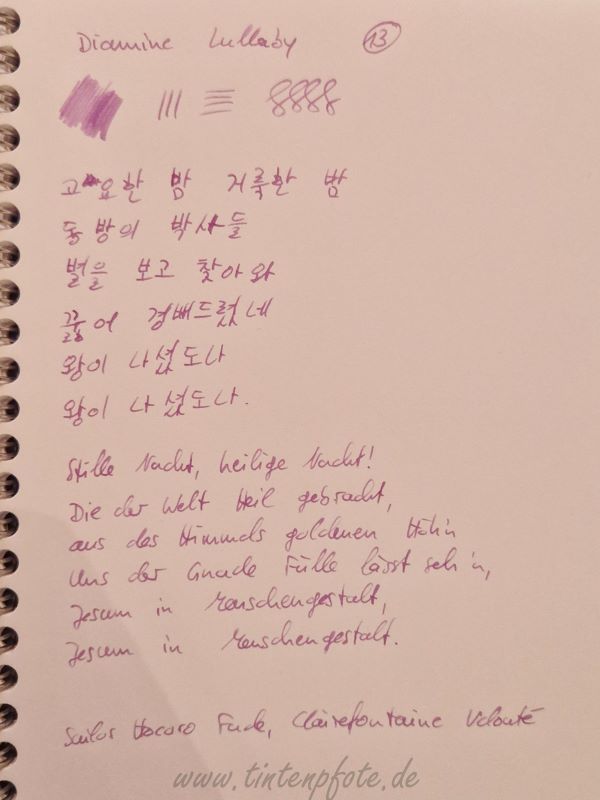 Diamine Lullaby 13
고요한 밤 거룩한 밤
동방의 박사들
별을 보고 찾아와
꿇어 경배드렸네
왕이 나셨도다
왕이 나셨도다.
Stille Nacht, heilige Nacht!
Die der Welt Heil gebracht,
aus des Himmels goldenen Höh'n
Uns der Gnade Fülle lässt seh'n,
Jesum in Menschengestalt,
Jesum in Menschengestalt.
Sailor Hocoro Fude, Clairefontaine Velouté
www.tintenpfote.de